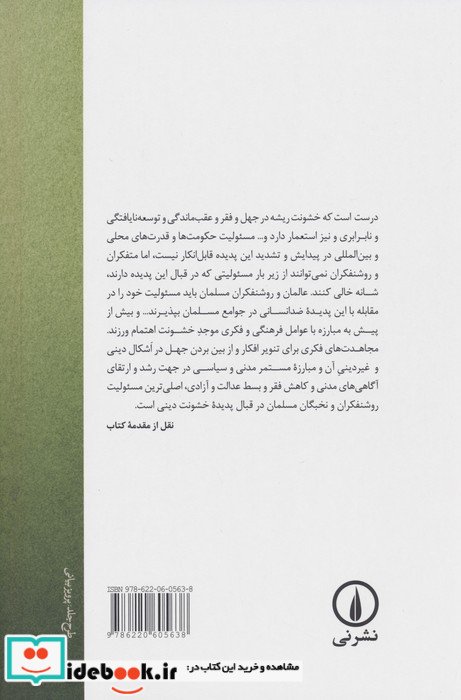 درست است که خشونت ریشه در جهل و فقر و عقب‌ماندگی و توسعه‌نایافتگی
و نابرابری و نیز استعمار دارد و... مسئولیت حکومت‌ها و قدرت‌های محلی و
بین‌المللی در پیدایش و تشدید این پدیده قابل‌انکار نیست، اما متفکران و
روشنفکران نمی‌توانند از زیر بار مسئولیتی که در قبال این پدیده دارند،
شانه خالی کنند. عالمان و روشنفکران مسلمان باید مسئولیت خود را در
مقابله با این پدیدهٔ ضدانسانی در جوامع مسلمان بپذیرند... و بیش از
پیش به مبارزه با عوامل فرهنگی و فکری موجدِ خشونت اهتمام ورزند.
مجاهدت‌های فکری برای تنویر افکار و از بین بردن جهل در اَشکال دینی
و غیردینیِ آن و مبارزهٔ مستمر مدنی و سیاسی در جهت رشد و ارتقای
آگاهی‌های مدنی و کاهش فقر و بسط عدالت و آزادی، اصلی‌ترین مسئولیت
روشنفکران و نخبگان مسلمان در قبال پدیدهٔ خشونت دینی است.
نقل از مقدمهٔ کتاب
طرح جلد: پرویز بیانی
ISBN 978-622-06-0563-8
9 786220 605638
نشرنی
مشاهده و خرید این کتاب در:
idebook.ir